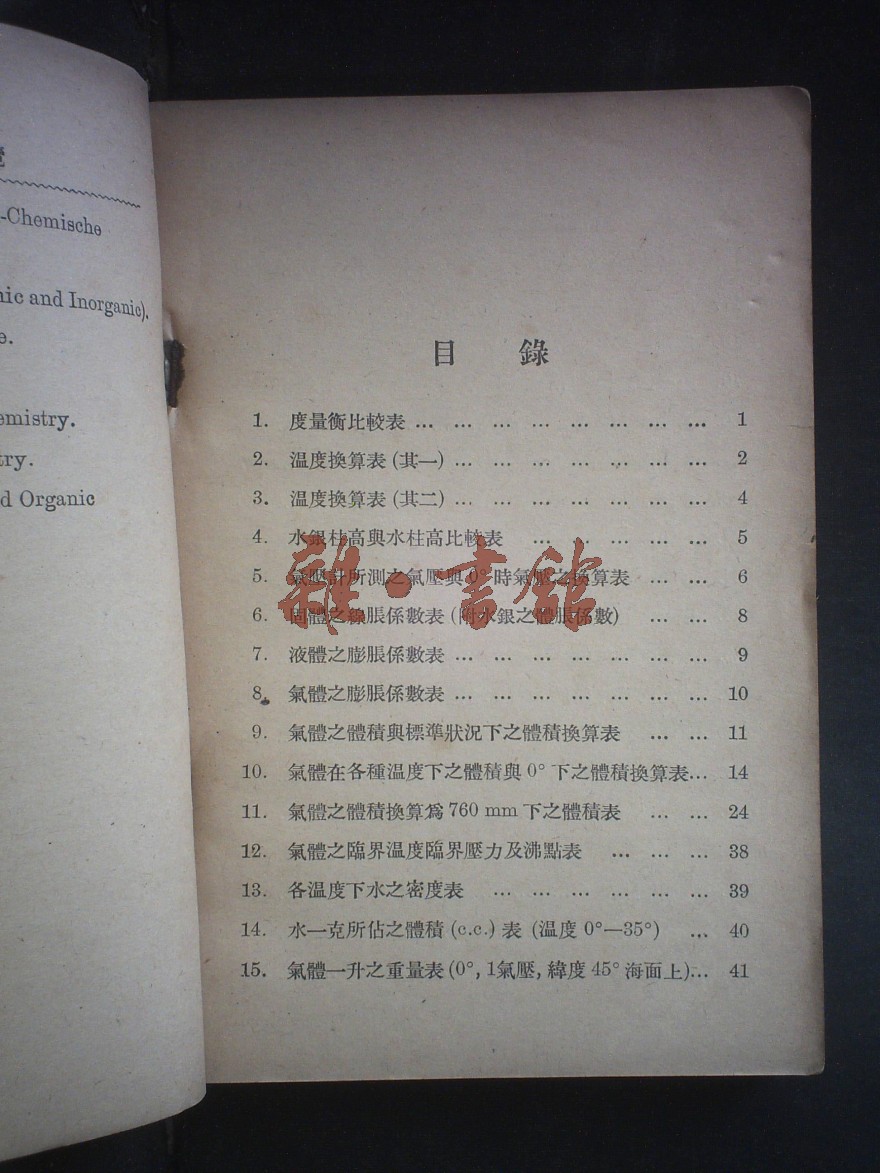 -Chemische
and Inorganic).
e.
emistry.
try.
d Organic
目錄
1. 度量衡比較表 ... ... ... ... ... ... ... ... 1
2. 温度換算表 (其一) ... ... ... ... ... ... ... 2
3. 温度換算表 (其二) ... ... ... ... ... ... ... 4
4. 水銀柱高與水柱高比較表 ... ... ... ... ... 5
5. 氣壓計所測之氣壓與 0° 時氣壓之換算表 ... ... 6
6. 固體之線脹係數表 (附水銀之體脹係數) ... ... 8
7. 液體之膨脹係數表 ... ... ... ... ... ... ... 9
8. 氣體之膨脹係數表 ... ... ... ... ... ... ... 10
9. 氣體之體積與標準狀況下之體積換算表 ... ... 11
10. 氣體在各種温度下之體積與 0° 下之體積換算表... 14
11. 氣體之體積換算爲 760 mm 下之體積表 ... ... 24
12. 氣體之臨界温度臨界壓力及沸點表 ... ... ... 38
13. 各温度下水之密度表 ... ... ... ... ... ... 39
14. 水一克所佔之體積 (c.c.) 表 (温度 0°—35°) ... 40
15. 氣體一升之重量表 (0°, 1氣壓, 緯度 45° 海面上)... 41
雜·書館